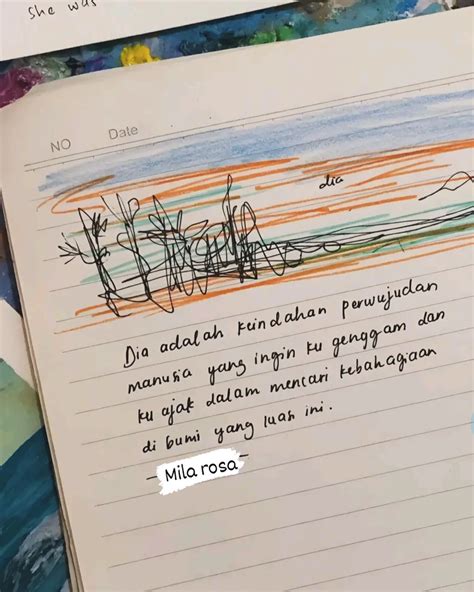 She was
NO Date
dia
Dia adalah keindahan perwujudan
manusia yang ingin ku genggam dan
ku ajak dalam mencari kebahagiaan
di bumi yang luas ini.
- Mila rosa -